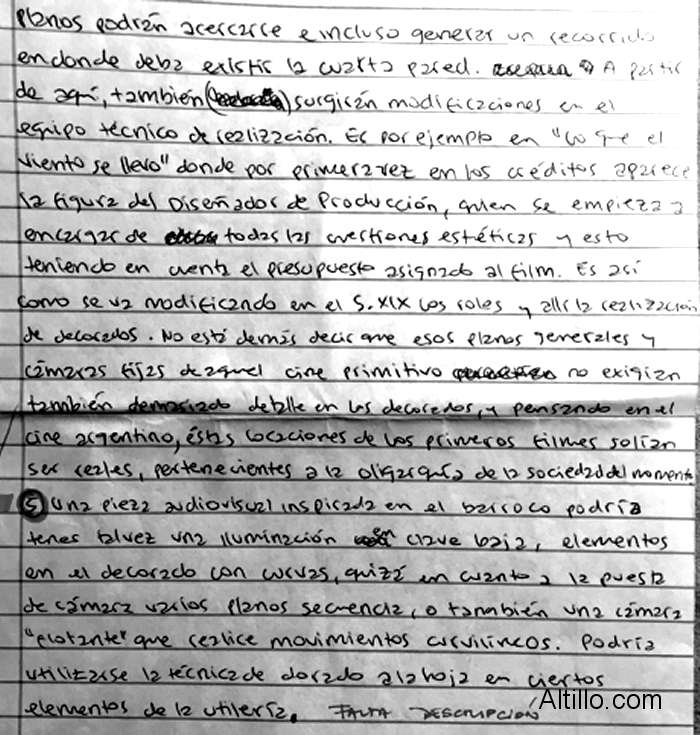 planos podrán acercarse e incluso generar un recorrido
en donde deba existir la cuarta pared. A partir
de aquí, también () surgirán modificaciones en el
equipo técnico de realización. Es por ejemplo en "Lo que el
viento se llevo" donde por primera vez en los créditos aparece
la figura del Diseñador de Producción, quien se empieza a
encargar de todas las cuestiones estéticas y esto
teniendo en cuenta el presupuesto asignado al film. Es así
como se va modificando en el S.XIX los roles y allí la realización
de decorados. No está demás decir que esos planos generales y
cámaras fijas de aquel cine primitivo no exigían
también demasiado detalle en los decorados, y pensando en el
cine argentino, éstas locaciones de los primeros filmes solían
ser reales, pertenecientes a la oligarquía de la sociedad del momento
5 Una pieza audiovisual inspirada en el barroco podría
tener talvez una iluminación en clave baja, elementos
en el decorado con curvas, quizá en cuanto a la puesta
de cámara varios planos secuencia, o también una cámara
"flotante" que realice movimientos curvilíneos. Podría
utilizarse la técnica de dorado a la hoja en ciertos
elementos de la utilería. FALTA DESCRIPCIÓN
Altillo.com